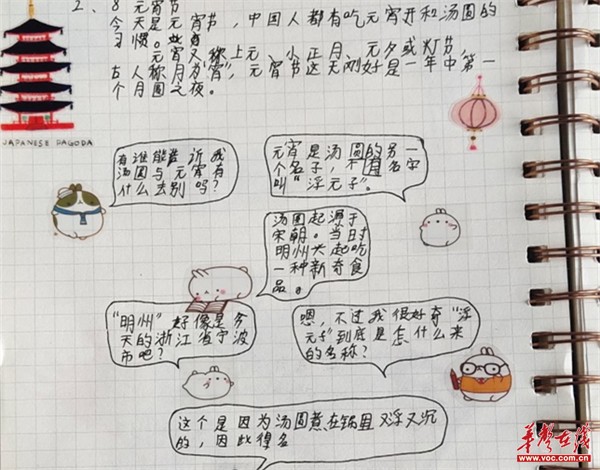 2、8 元宵节
今天是元宵节，中国人都有吃元宵和汤圆的
习惯。
元宵又称上元、小正月、元夕或灯节，
古人称月为"宵"，元宵节这天刚好是一年中第一
个月圆之夜。
JAPANESE PAGODA
有谁能告诉我
汤圆与元宵有
什么去别吗？
元宵是汤圆的另一
个名子，不过名字
叫"浮元子"。
汤圆起源于
宋朝。当时
明州兴起吃
一种新奇食
品。
"明州"好像是今
天的浙江省宁波
市吧？
嗯，不过我很好奇"浮
元子"到底是怎什么来
的名称？
这个是因为汤圆煮在锅里又浮又沉
的，因此得名
华声在线
www.voc.com.cn